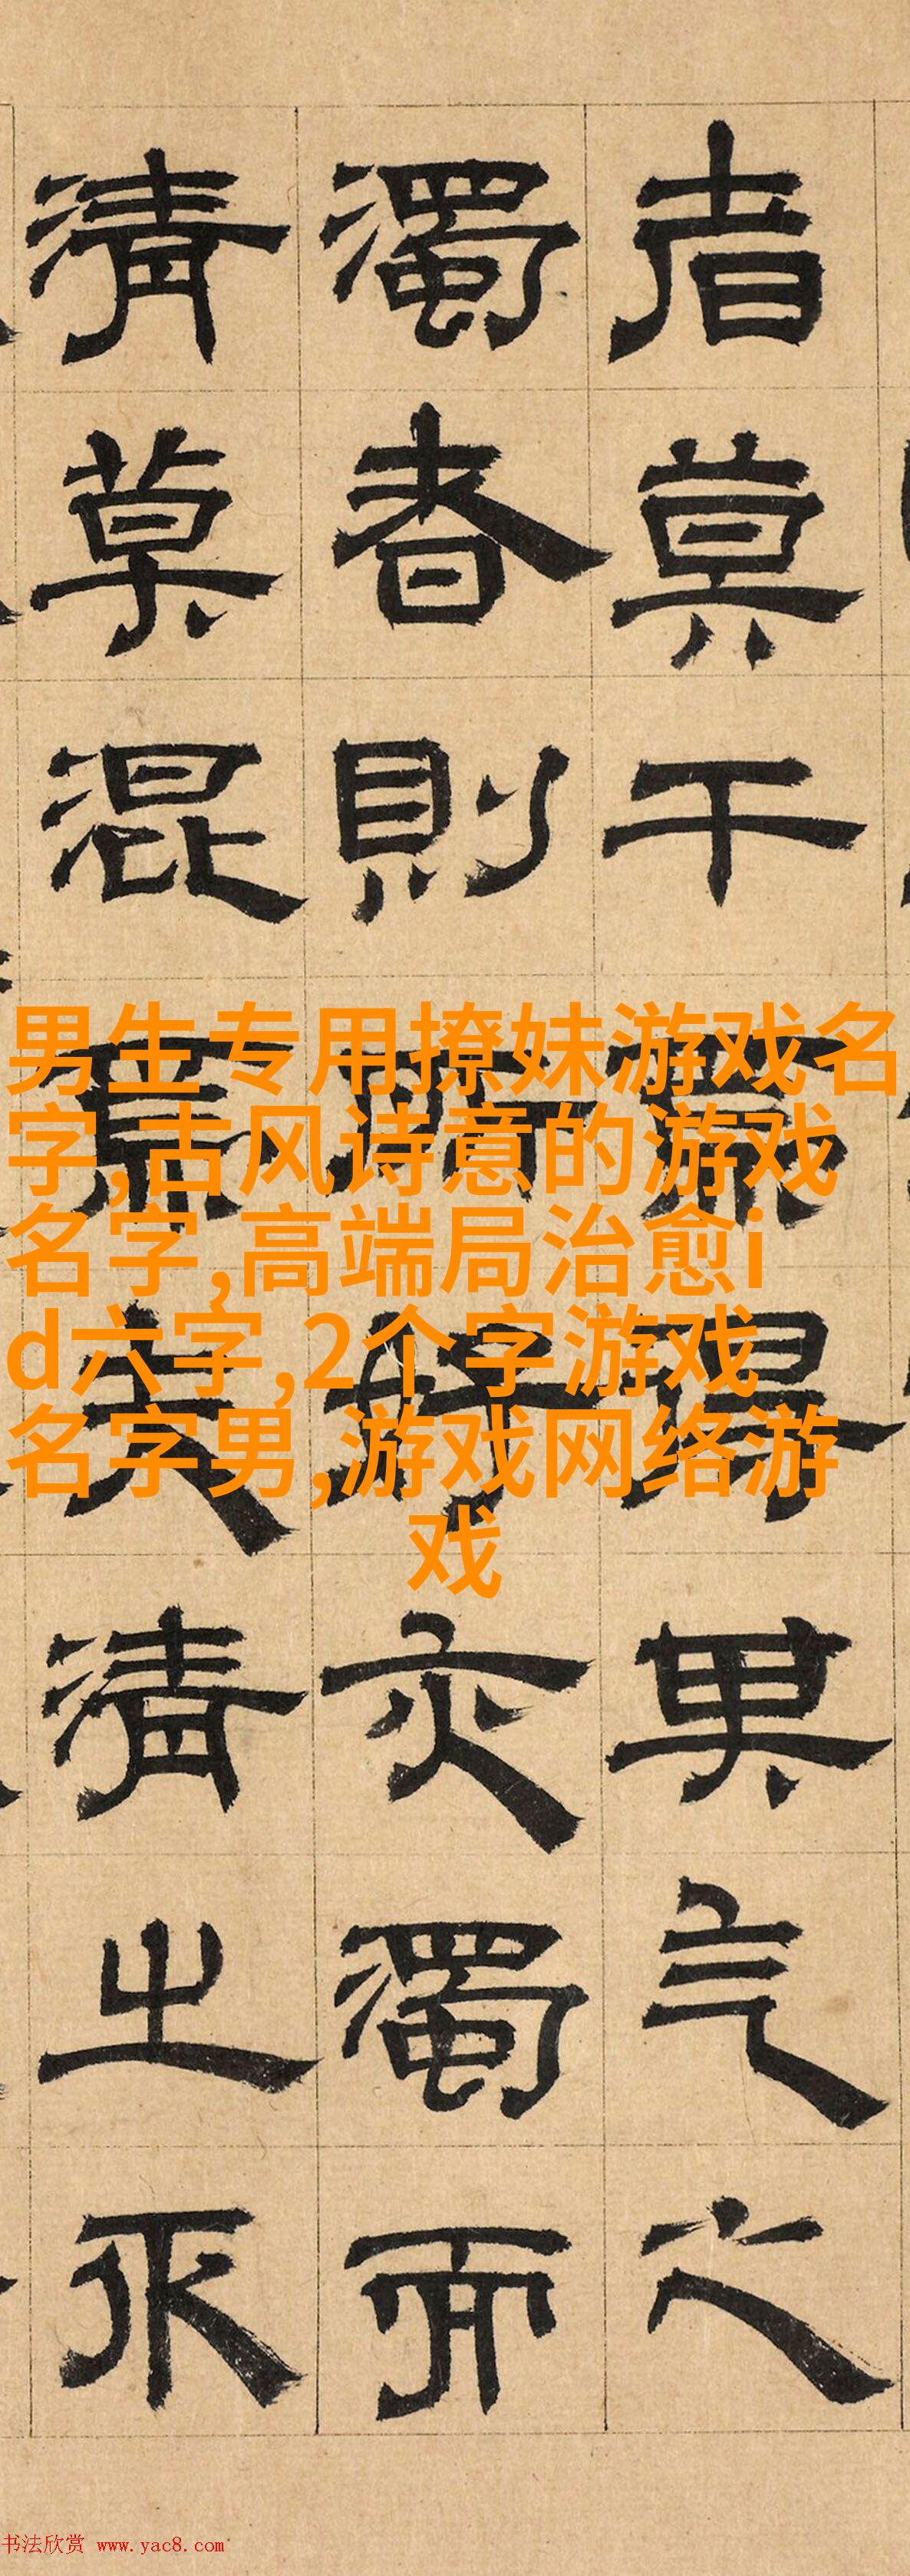 者莫干
得其气之
濁者則所
亦濁而
清草混
清之
男生专用撩妹游戏名
字,古风诗意的游戏
名字,高端局治愈i
d六字,2个字游戏
名字男,游戏网络游
戏
书法欣赏 www.yac8.com